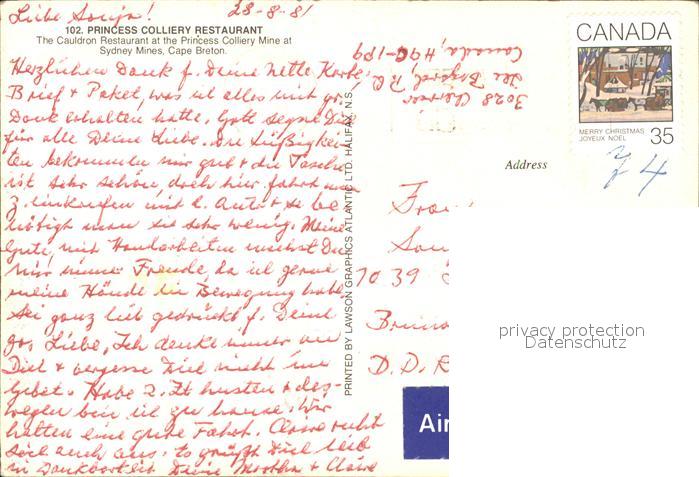 Liebe Sonja! 28-8-81
102. PRINCESS COLLIERY RESTAURANT
The Cauldron Restaurant at the Princess Colliery Mine at
Sydney Mines, Cape Breton.
Herzlichen Dank f. Deine nette Karte,
Brief + Paket, was ich alles mit gr.
Dank erhalten hatte. Gott segne Dich
für alle Deine Liebe. Die Süßigkei-
ten bekommen mir gut + die Tasche
ist sehr schön, doch hier fährt man
z. einkaufen mit d. Auto + so be-
nötigt man sie sehr wenig. Meine
Gute, mit Handarbeiten machst Du
mir immer Freude, da ich gerne
meine Hände in Bewegung habe.
Sei ganz lieb gedrückt f. Deine
gr. Liebe. Ich denke immer an
Dich + vergesse Dich nicht im
Gebet. Habe z. Zt. husten + des-
wegen bin ich zu hause. Wir
hatten eine gute Fahrt. Claire ruht
sich auch aus. So grüßt Dich lieb
in Dankbarkeit Deine Martha + Claire
3028
Canada, H9C-1P9
PRINTED BY LAWSON GRAPHICS ATLANTIC LTD. HALIFAX, N.S.
CANADA
MERRY CHRISTMAS
JOYEUX NOËL
35
Address
7039
D.D.R
Air
privacy protection
Datenschutz